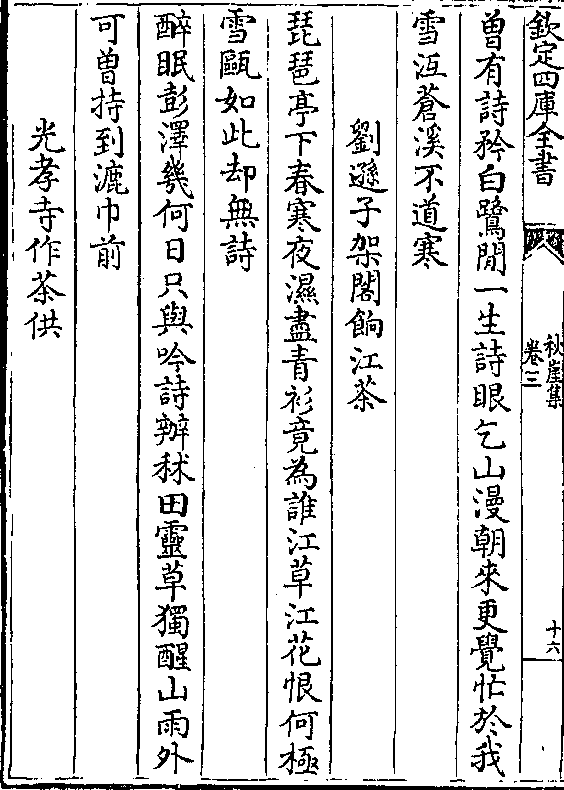 欽定四庫全書
秋崖集
卷三
十六
曽有詩矜白鷺閒一生詩眼乞山漫朝來更覺忙於我
雪冱蒼溪不道寒
劉遜子架閣餉江茶
琵琶亭下春寒夜濕盡青衫竟為誰江草江花恨何極
雪甌如此却無詩
醉眠彭澤幾何日只與吟詩辦秫田靈草獨醒山雨外
可曽持到漉巾前
光孝寺作茶供